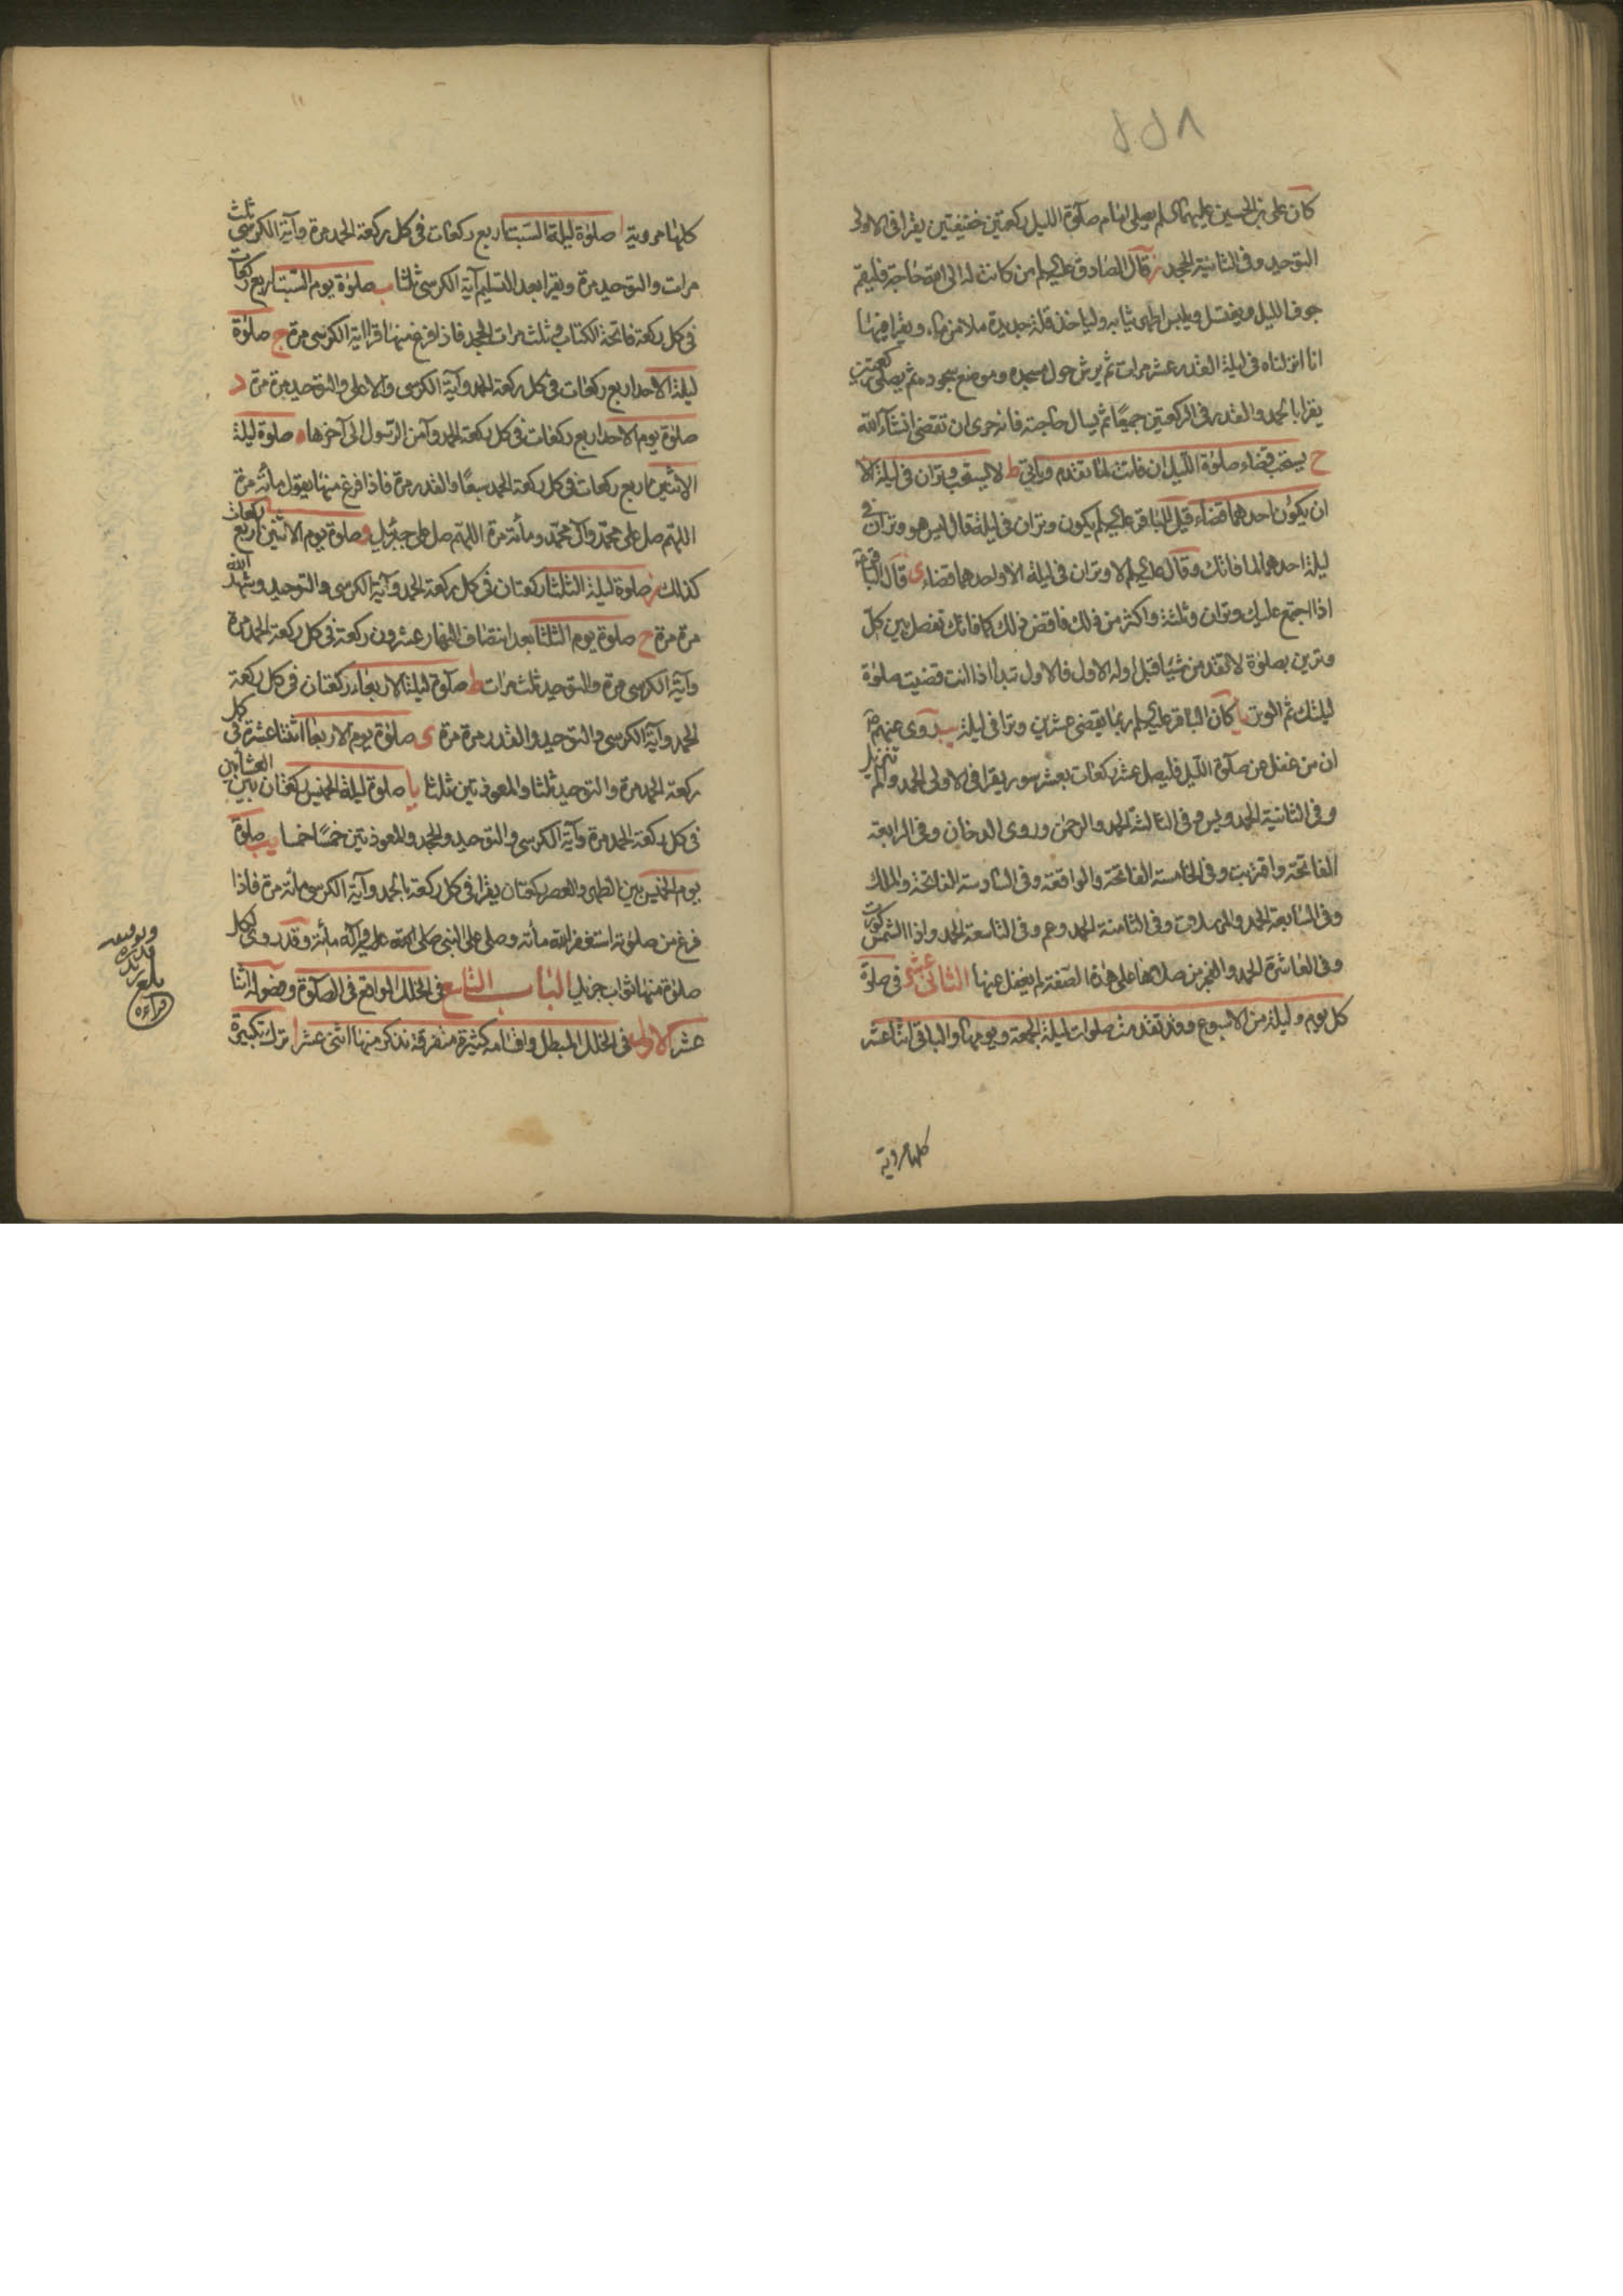 كان علي بن الحسين عليهما السلم يصلي امام صلوة الليل ركعتين خفيفتين يقرا في الاولى
التوحيد وفي الثانية الجحد ز قال الصادق عليه السلم من كانت له الى الله حاجة فليقم
جوف الليل ويغتسل ويلبس اطهر ثيابه ولياخذ قلة جديدة ملا من ماء ويقرا فيها
انا انزلناه في ليلة القدر عشر مرات ثم يرش حول مسجده وموضع سجوده ثم يصلي ركعتين
يقرا بالحمد والقدر في الركعتين جميعا ثم يسال حاجته فانه حرى ان تقضى انشاء الله
ح يستحب قضاء صلوة الليل ان فاتت لما تقدم وياتي ط لا يستحب وتران في ليلة الا
ان يكون احدهما قضاء قيل للباقر عليه السلم يكون وتران في ليلة قال ليس هو وتران في
ليلة احدهما لما فاتك وقال عليه السلم لا وتران في ليلة الا واحدهما قضاء ى قال الباقر
اذا اجتمع عليك وتران وثلثة واكثر من ذلك فاقض ذلك كما فاتك تفصل بين كل
وترين بصلوة لا تقدمن شيئا قبل اوله الاول فالاول تبدا اذا انت قضيت صلوة
ليلتك ثم الوتر يا كان الباقر عليه السلم ربما يقضي عشرين وترا في ليلة يب روى عنهم
ان من غفل عن صلوة الليل فليصل عشر ركعات بعشر سور يقرا في الاولى الحمد والم تنزيل
وفي الثانية الحمد ويس وفي الثالثة الحمد والرحمن وروى الدخان وفي الرابعة
الفاتحة واقتربت وفي الخامسة الفاتحة والواقعة وفي السادسة الفاتحة والملك
وفي السابعة الحمد والمرسلات وفي الثامنة الحمد وعم وفي التاسعة الحمد واذا الشمس كورت
وفي العاشرة الحمد والفجر من صلاها على هذه الصفة لم يغفل عنها الثاني عشر في صلوة
كل يوم وليلة من الاسبوع وقد تقدمت صلوات ليلة الجمعة ويومها والباقي اثنا عشر
كلها مروية
كلها مروية ا صلوة ليلة السبت اربع ركعات في كل ركعة الحمد مرة وآية الكرسي ثلث
مرات والتوحيد مرة ويقرا بعد التسليم آية الكرسي ثلثا ب صلوة يوم السبت اربع ركعات
في كل ركعة فاتحة الكتاب وثلث مرات الجحد فاذا فرغ منها قرا آية الكرسي مرة ج صلوة
ليلة الاحد اربع ركعات في كل ركعة الحمد وآية الكرسي والاعلى والتوحيد مرة مرة د
صلوة يوم الاحد اربع ركعات في كل ركعة الحمد وآمن الرسول الى آخرها ه صلوة ليلة
الاثنين اربع ركعات في كل ركعة الحمد سبعا والقدر مرة فاذا فرغ منها يقول مائة مرة
اللهم صل على محمد وآل محمد ومائة مرة اللهم صل على جبرئيل و صلوة يوم الاثنين اربع ركعات
كذلك ز صلوة ليلة الثلثا ركعتان في كل ركعة الحمد وآية الكرسي والتوحيد وشهد الله
مرة مرة ح صلوة يوم الثلثا بعد انتصاف النهار عشرون ركعة في كل ركعة الحمد مرة
وآية الكرسي مرة والتوحيد ثلث مرات ط صلوة ليلة الاربعاء ركعتان في كل ركعة
الحمد وآية الكرسي والتوحيد والقدر مرة مرة ى صلوة يوم الاربعا اثنتا عشرة في كل
ركعة الحمد مرة والتوحيد ثلثا والمعوذتين ثلثا يا صلوة ليلة الخميس ركعتان بين العشائين
في كل ركعة الحمد مرة وآية الكرسي والتوحيد والجحد والمعوذتين خمسا خمسا يب صلوة
يوم الخميس بين الظهر والعصر ركعتان يقرا في كل ركعة بالحمد وآية الكرسي مائة مرة فاذا
فرغ من صلوته استغفر الله مائة وصلى على النبي صلى الله عليه وآله مائة وقد روى لكل
صلوة منها ثواب جزيل الباب التاسع في الخلل الواقع في الصلوة وفصوله اثنا
عشر الاول في الخلل المبطل واقسامه كثيرة متفرقة نذكر منها اثنى عشر ا ترك تكبيرة